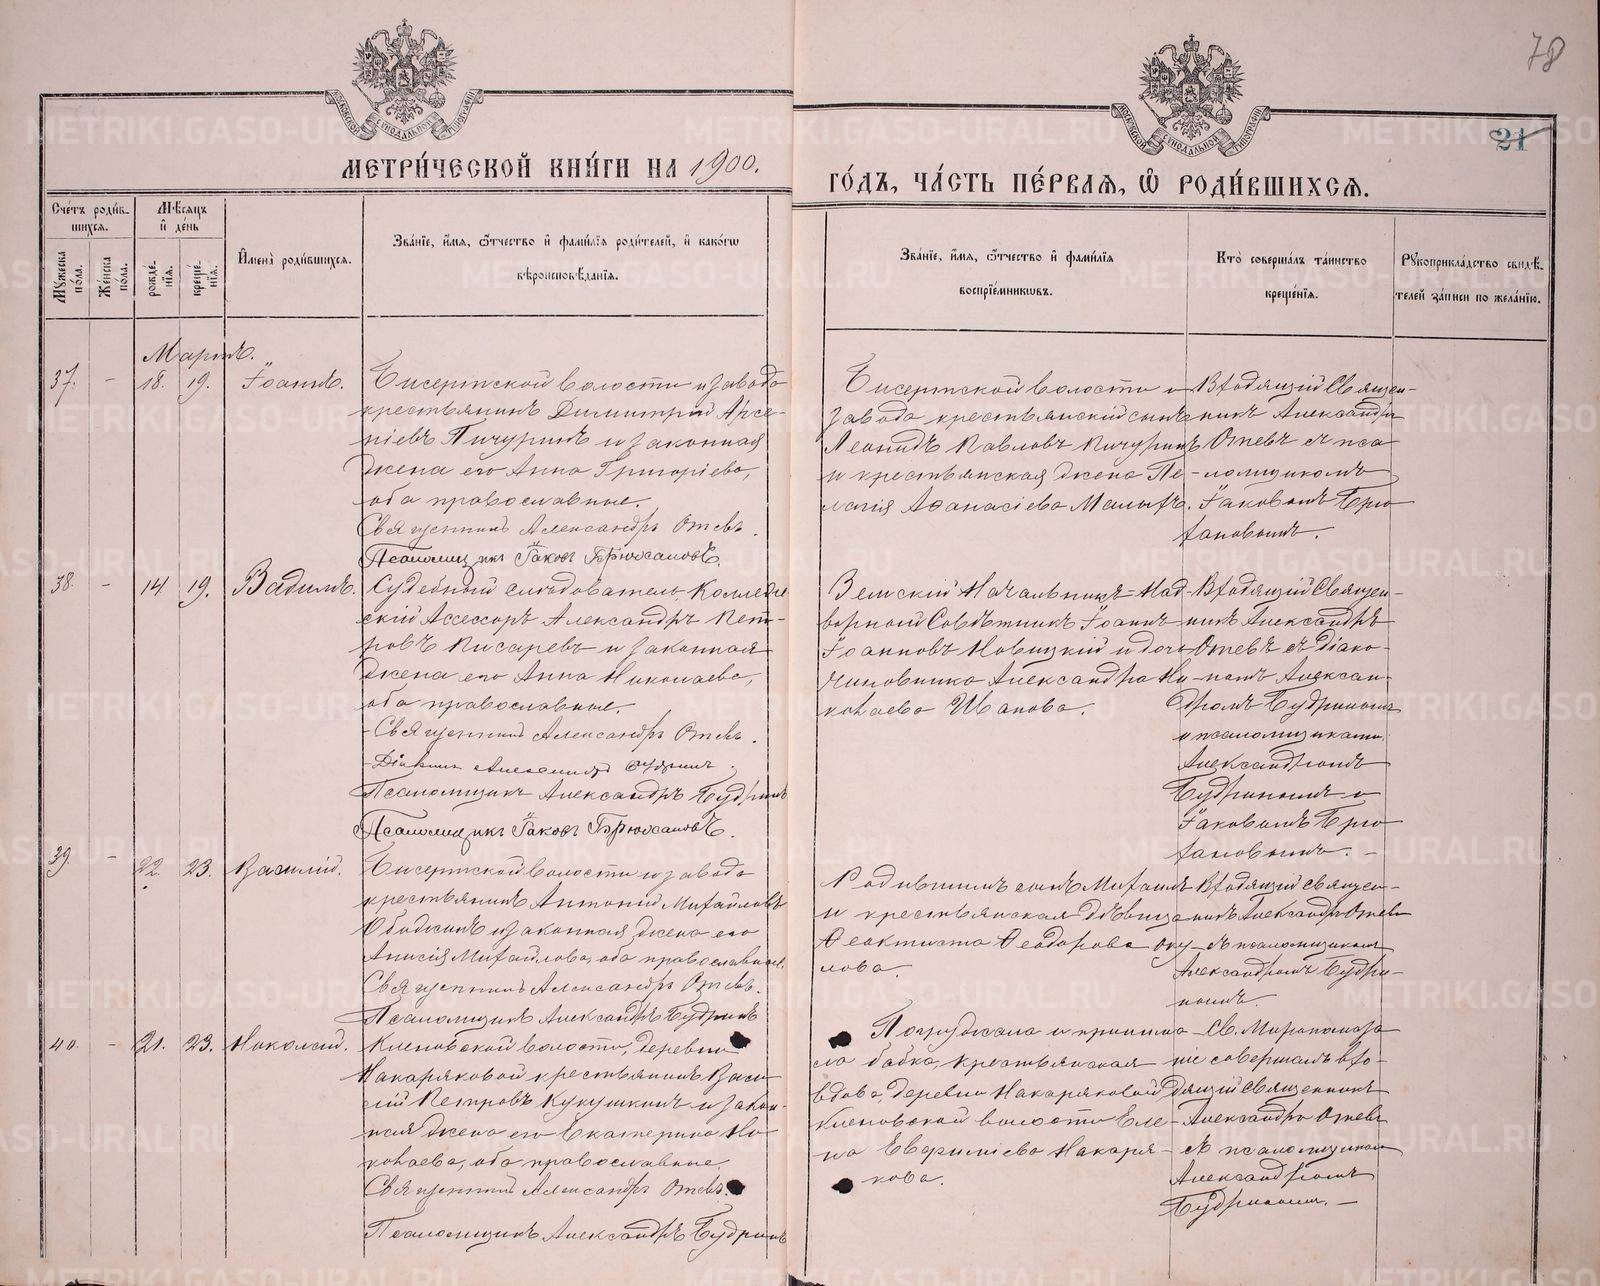 78
21
МОСКОВСКОЙ СѴНОДАЛЬНОЙ ТИПОГРАФІИ
МОСКОВСКОЙ СѴНОДАЛЬНОЙ ТИПОГРАФІИ
МЕТРИ́ЧЕСКОЙ КНИ́ГИ НА 1900.
ГО́ДЪ, ЧА́СТЬ ПЕ́РВАЯ, Ѽ РОДИ́ВШИХСЯ.
Сче́тъ роди́в-
шихся.
Мужеска по́ла.
Же́нска по́ла.
Мѣ́сяцъ
и҆ де́нь
рожде́-
нїя.
креще́-
нїя.
И҆мена̀ роди́вшихся.
Зва́нїе, и҆́мя, ѻ҆́тчество и҆ фами́лїя роди́телей, и҆ како́гѡ
вѣроисповѣ́данїя.
Зва́нїе, и҆́мя, ѻ҆́тчество и҆ фами́лїя
воспрїе́мникѡвъ.
Кто̀ соверша́лъ та́инство
креще́нїя.
Рукоприкла́дство свидѣ́-
телей за́писи по жела́нїю.
Мартъ.
37. - 18. 19. Іоаннъ.
Бисертской волости и завода
крестьянинъ Димитрій Арсе-
ніевъ Пичугинъ и законная
жена его Анна Григоріева,
оба православные.
Священникъ Александръ Отевъ.
Псаломщикъ Іаковъ Брюхановъ.
Бисертской волости и
завода крестьянскій сынъ
Леонидъ Павловъ Пичугинъ
и крестьянская жена Пе-
лагія Аѳанасіева Малыхъ.
Входящій Священ-
никъ Александръ
Отевъ съ пса-
ломщикомъ
Іаковомъ Брю-
хановымъ.
38. - 14. 19. Вадимъ.
Судебный слѣдователь Коллеж-
скій Ассесоръ Александръ Пет-
ровъ Писаревъ и законная
жена его Анна Николаева,
оба православные.
Священникъ Александръ Отевъ.
Діаконъ Александръ Будринъ.
Псаломщикъ Александръ Будринъ
Псаломщикъ Іаковъ Брюхановъ.
Земскій Начальникъ = Над-
ворный Совѣтникъ Іоаннъ
Іоанновъ Новицкій и дочь
чиновника Александра Ни-
колаева Иванова.
Входящій Священ-
никъ Александръ
Отевъ съ Діако-
номъ Алексан-
дромъ Будринымъ
и псаломщиками
Александромъ
Будринымъ и
Іаковомъ Брю-
хановымъ. -
39. - 22. 23. Василій.
Бисертской волости и завода
крестьянинъ Антоній Михайловъ
Ободкинъ и законная жена его
Анисія Михайлова, оба православные.
Священникъ Александръ Отевъ.
Псаломщикъ Александръ Будринъ
Родившимъ сынъ Михаилъ
и крестьянская дѣвица
Ѳеоктиста Ѳеодорова Оку-
лова.
Входящій священ-
никъ Александръ Отевъ
съ псаломщикомъ
Александромъ Будри-
нымъ.
40. - 21. 23. Николай.
Кленовской волости, деревни
Накаряковой крестьянинъ Васи-
лій Петровъ Кукушкинъ и закон-
ная жена его Екатерина Ни-
колаева, оба православные.
Священникъ Александръ Отевъ.
Псаломщикъ Александръ Будринъ
Погружала и приняла
бабка, крестьянская
вдова, деревни Накаряковой
Кленовской волости Еле-
на Накаря-
кова.
Св. Миропомаза-
ніе совершалъ вхо-
дящій священникъ
Александръ Отевъ
съ псаломщикомъ
Александромъ
Будринымъ. -